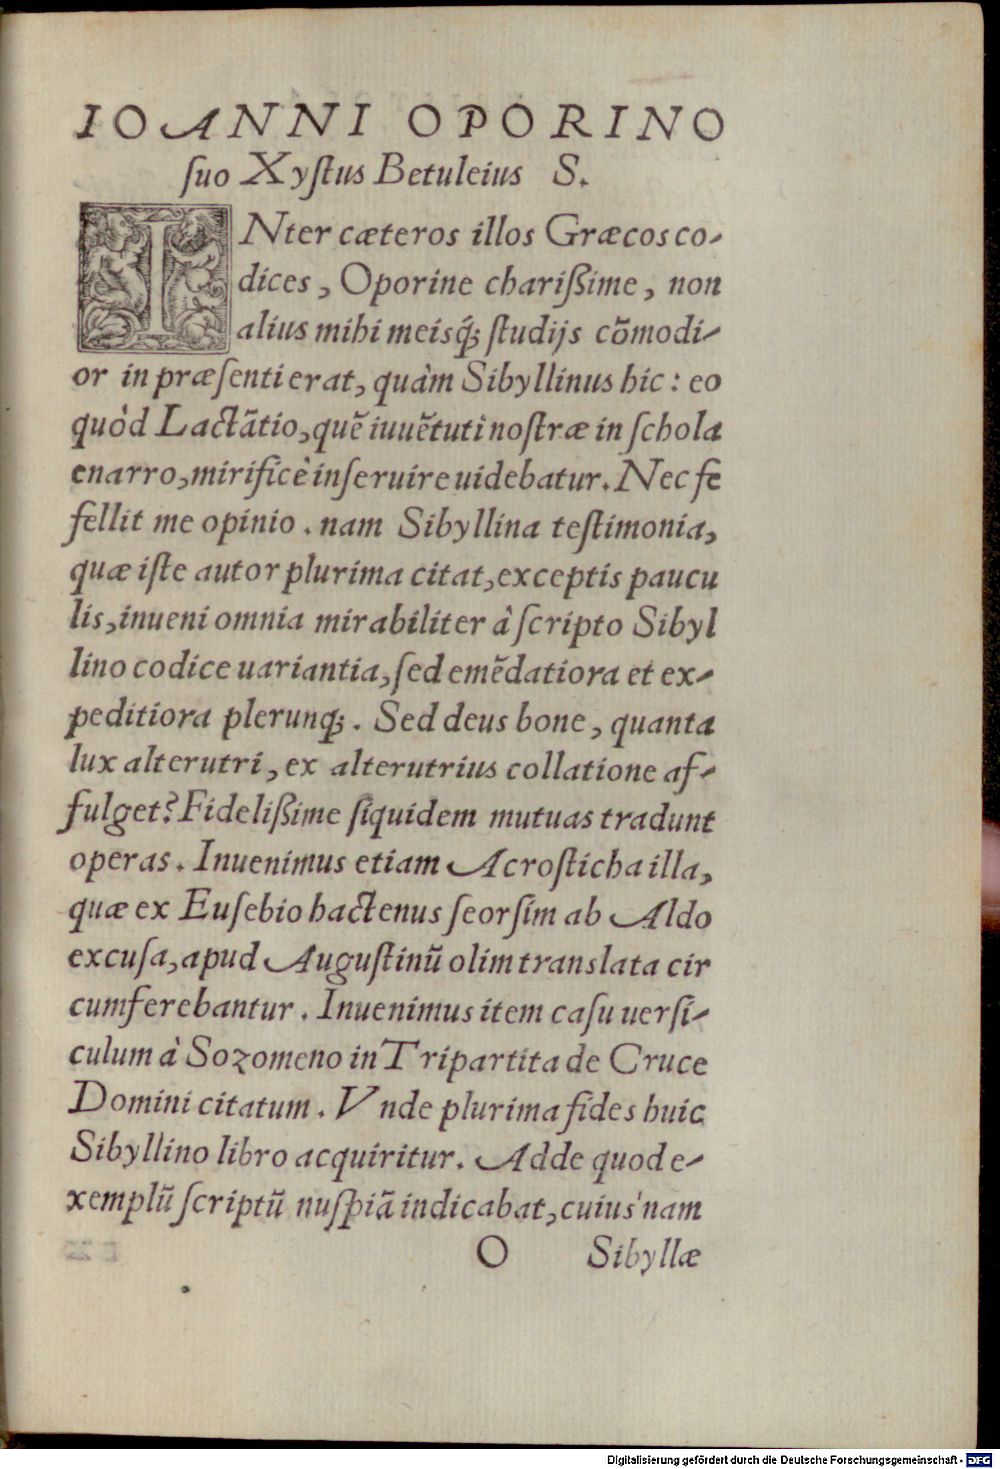 IOANNI OPORINO
ſuo Xyſtus Betuleius S.
INter cæteros illos Græcos co-
dices, Oporine chariſſime, non
alius mihi meisq́; ſtudijs cõmodi-
or in præſenti erat, quàm Sibyllinus hic: eo
quòd Lactãtio, quẽ iuuẽtuti noſtræ in ſchola
enarro, mirificè inſeruire uidebatur. Nec fe
fellit me opinio. nam Sibyllina teſtimonia,
quæ iſte autor plurima citat, exceptis paucu
lis, inueni omnia mirabiliter à ſcripto Sibyl
lino codice uariantia, ſed emẽdatiora et ex-
peditiora plerunq;. Sed deus bone, quanta
lux alterutri, ex alterutrius collatione af-
fulget? Fideliſſime ſiquidem mutuas tradunt
operas. Inuenimus etiam Acroſticha illa,
quæ ex Euſebio hactenus ſeorſim ab Aldo
excuſa, apud Auguſtinũ olim translata cir
cumferebantur. Inuenimus item caſu uerſi-
culum à Sozomeno in Tripartita de Cruce
Domini citatum. Vnde plurima fides huic
Sibyllino libro acquiritur. Adde quod e-
xemplũ ſcriptũ nuſpiã indicabat, cuius'nam
O Sibyllæ
Digitalisierung gefördert durch die Deutsche Forschungsgemeinschaft - DFG